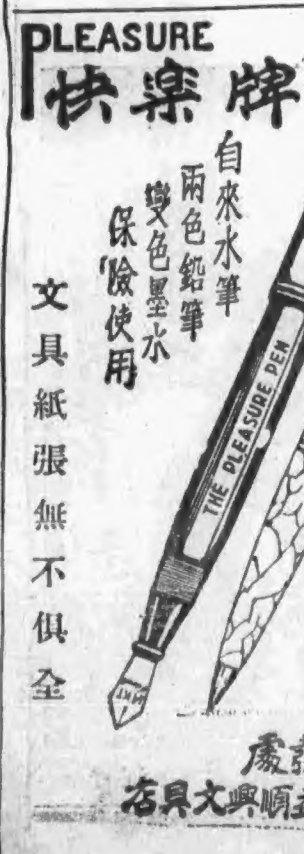 PLEASURE
快楽牌
自來水筆
兩色鉛筆
變色墨水
保險使用
文具紙張無不俱全
THE PLEASURE PEN
處
順興文具店